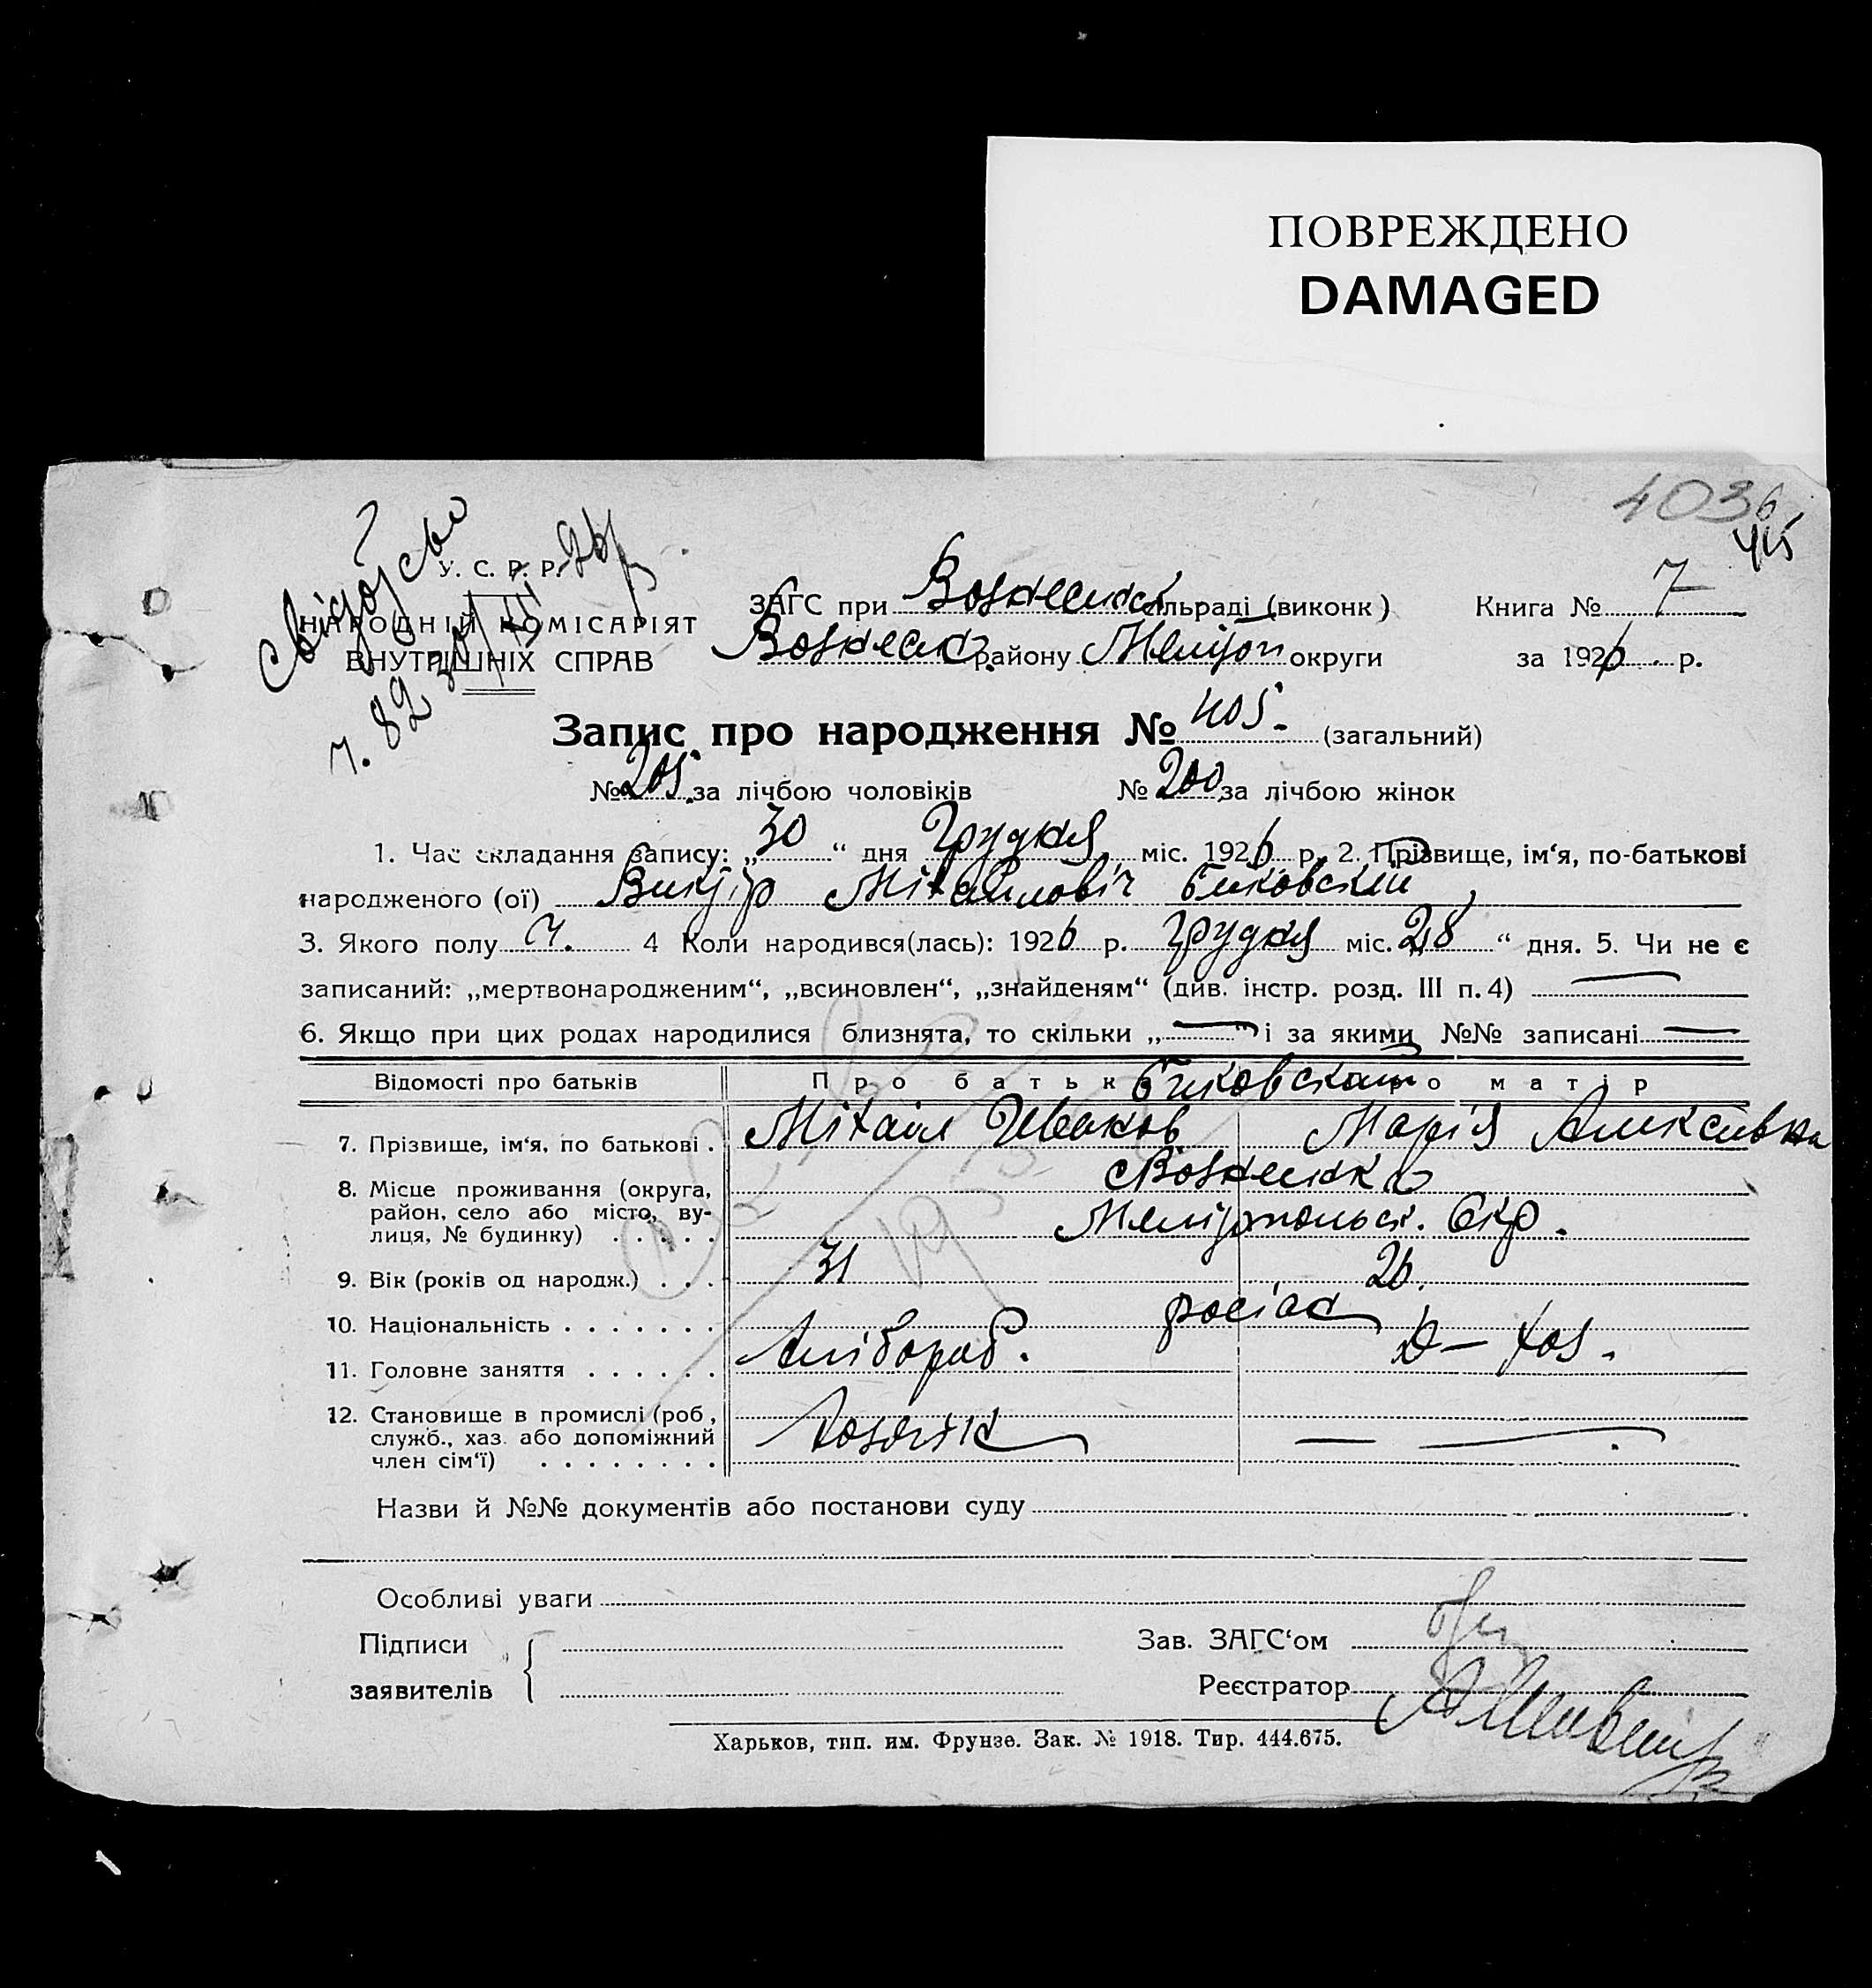 ПОВРЕЖДЕНО
DAMAGED
403
У. С. Р. Р.
НАРОДНІЙ КОМІСАРІЯТ
ВНУТРІШНІХ СПРАВ
Свідоцтво
ч. 82 30/XII 26 р.
ЗАГС при Вознесенск сільраді (виконк)
Книга № 7
Вознесенск. району Мелітоп округи
за 1926 р.
Запис про народження № 405. (загальний)
№ 205. за лічбою чоловіків № 200 за лічбою жінок
1. Час складання запису: „30“ дня Грудня міс. 1926 р. 2. Прізвище, ім‘я, по-батькові
народженого (ої) Віктір Міхайловіч Биковский
3. Якого полу Ч. 4 Коли народився(лась): 1926 р. Грудня міс. „28“ дня. 5. Чи не є
записаний: „мертвонародженим“, „всиновлен“, „знайденям“ (див. інстр. розд. III п. 4)
6. Якщо при цих родах народилися близнята, то скільки „—“ і за якими №№ записані
Відомості про батьків Про батька Про матір
Биковская
7. Прізвище, ім‘я, по батькові . Міхаіл Иванов Марія Алексивна
8. Місце проживання (округа, район, село або місто, вулиця, № будинку) . . . . . Вознесенка
Мелітопольск. Окр.
9. Вік (років од народж.) . . . 31 26.
10. Національність . . . . . . . росіян
11. Головне заняття . . . . . . Хлібороб. Д— хоз.
12. Становище в промислі (роб, служб., хаз. або допоміжний член сім‘ї) . . . . . . . . Хозяїн
Назви й №№ документів або постанови суду
Особливі уваги
Підписи заявителів
Зав. ЗАГС‘ом
Реєстратор
Харьков, тип. им. Фрунзе. Зак. № 1918. Тир. 444.675.